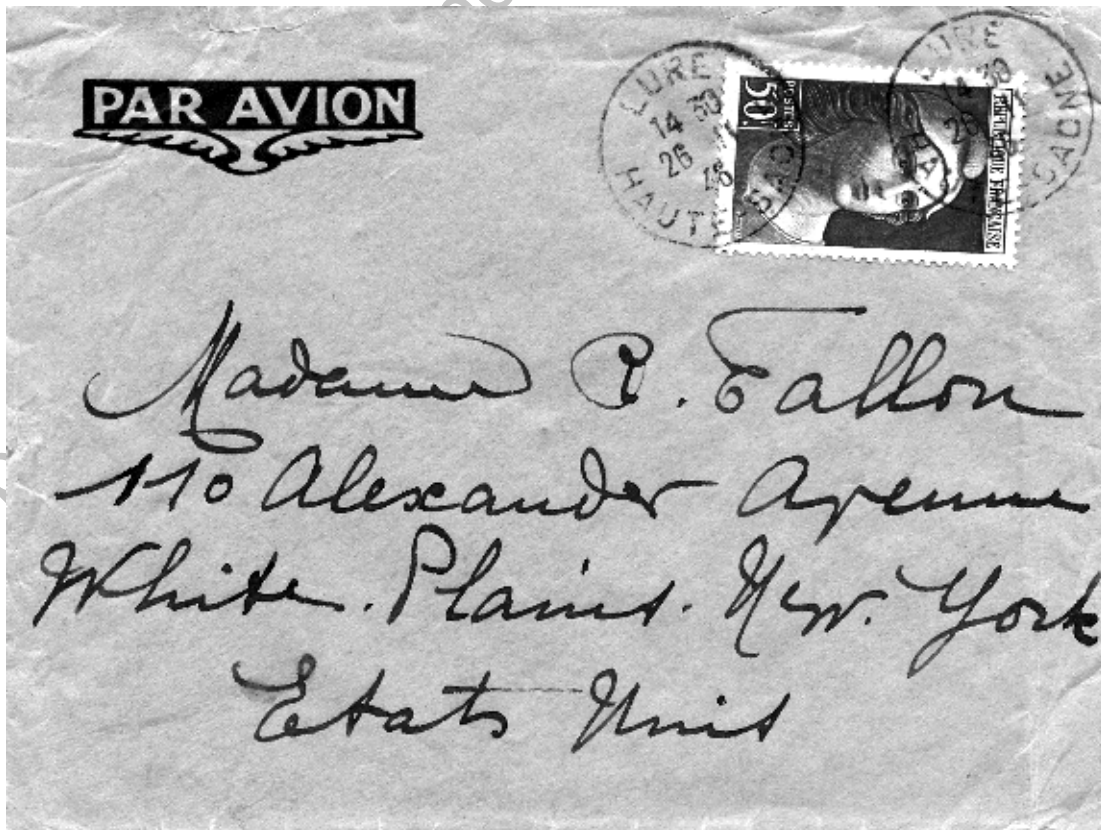 PAR AVION
LURE
14 30
26
HAUTE-SAONE
50f
POSTES
REPUBLIQUE FRANÇAISE
Madame R. Fallon
110 Alexander Avenue
White. Plains. New. York
Etats Unis